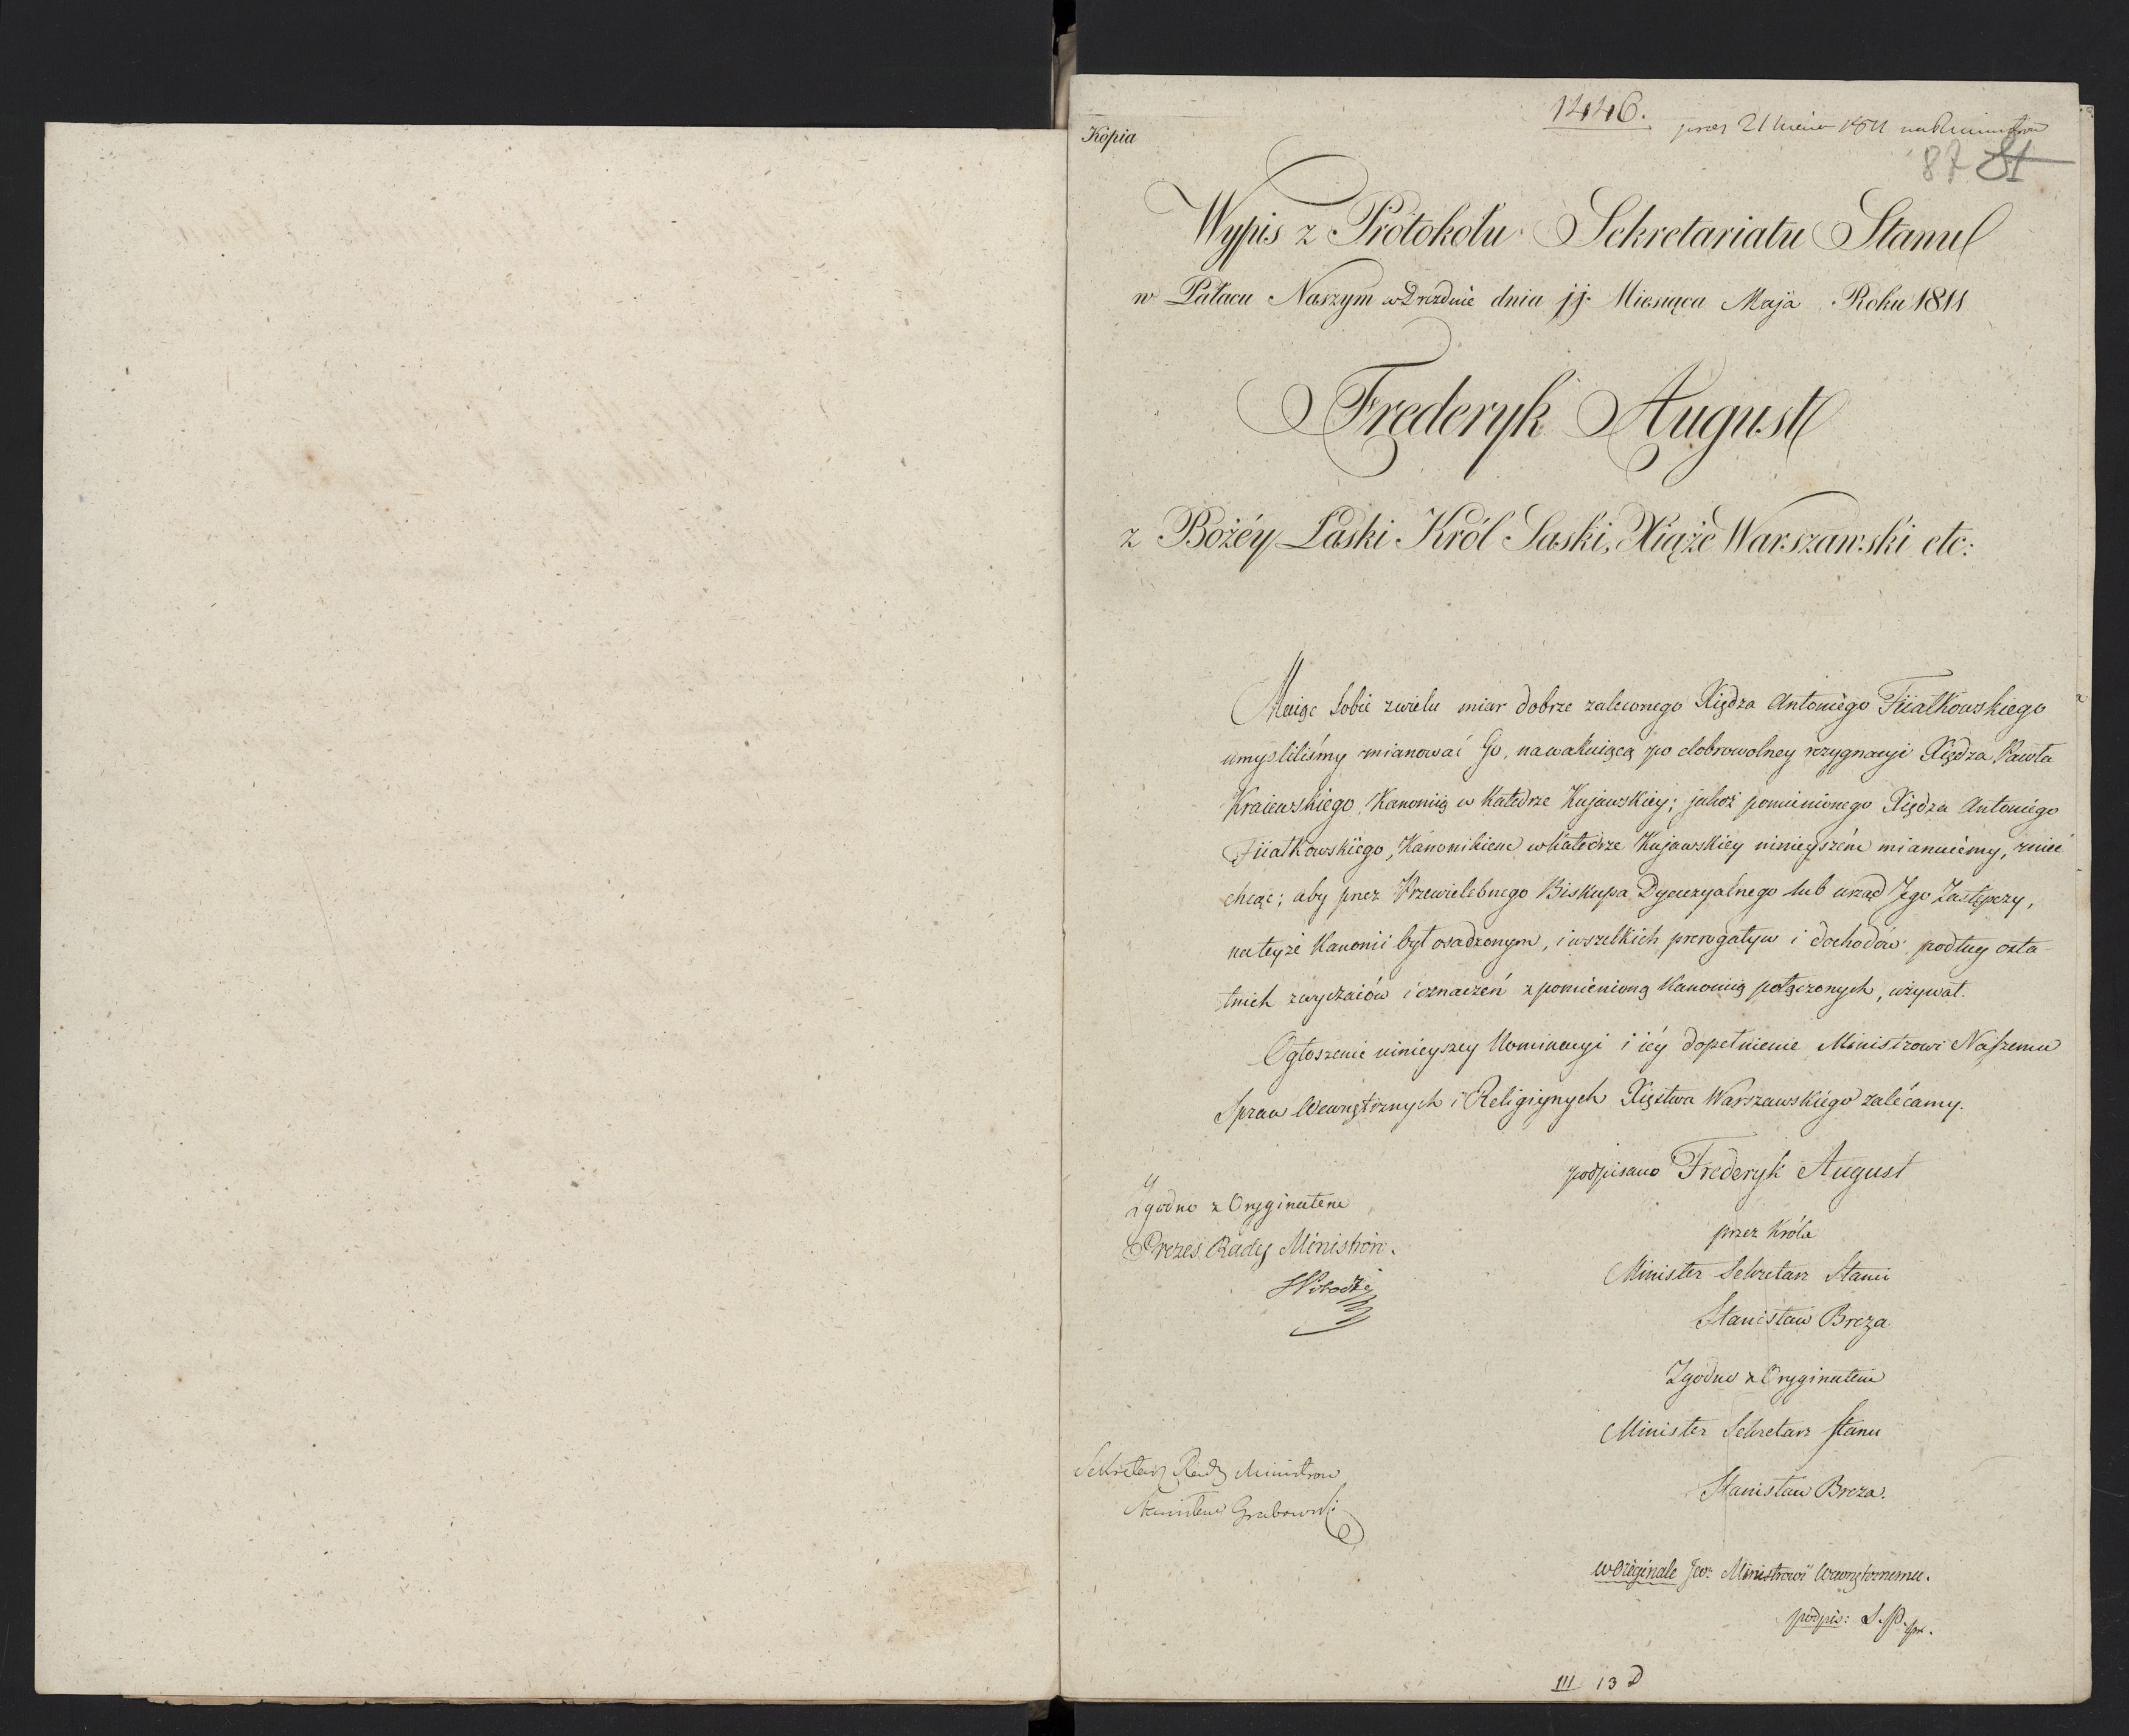 Kópia
1446.
87 81
Wypis z Protokołu Sekretariatu Stanu
w Pałacu Naszym w Dreznie dnia jj. Miesiąca Maja Roku 1811
Frederyk August
z Bożéy Łaski Król Saski, Xiąże Warszawski etc:
Maiąc sobie zwielu miar dobrze zaleconego Xiędza Antoniego Fiiałkowskiego
umysliliśmy mianować Go, nawakuiącą po dobrowolney rezygnacyi Xiędza Pawła
Kraiewskiego, Kanoniią w Katedrze Kujawskiey; jakoż pomienionego Xiędza Antoniego
Fiiałkowskiego, Kanonikiem w Katedrze Kujawskiey ninieyszém mianuiemy, mieć
chcąc; aby przez Przewielebnego Biskupa Dyecezyalnego lub urząd Jego Zastępczy,
na teyże Kanonii był osadzonym, i wszelkich prerogatyw i dochodów podług osta-
tnich zwyczaiów i oznaczeń z pomienioną Kanonią połączonych, używał.
Ogłoszenie ninieyszey Nominacyi i iéy dopełnienie Ministrowi Naszemu
Spraw Wewnętrznych i Religiynych Xięstwa Warszawskiego zalécamy.
podpisano Frederyk August
przez Króla
Minister Sekretarz Stanu
Stanisław Breza
Zgodno z Oryginałem
Minister Sekretarz Stanu
Stanisław Breza.
Zgodno z Oryginałem
Prezes Rady Ministrów.
Sekretarz Rady Ministrow
Stanisław Grabowski
w Originale Ministrowi Wewnętrznemu.
podpis: S. P.
III 13 D